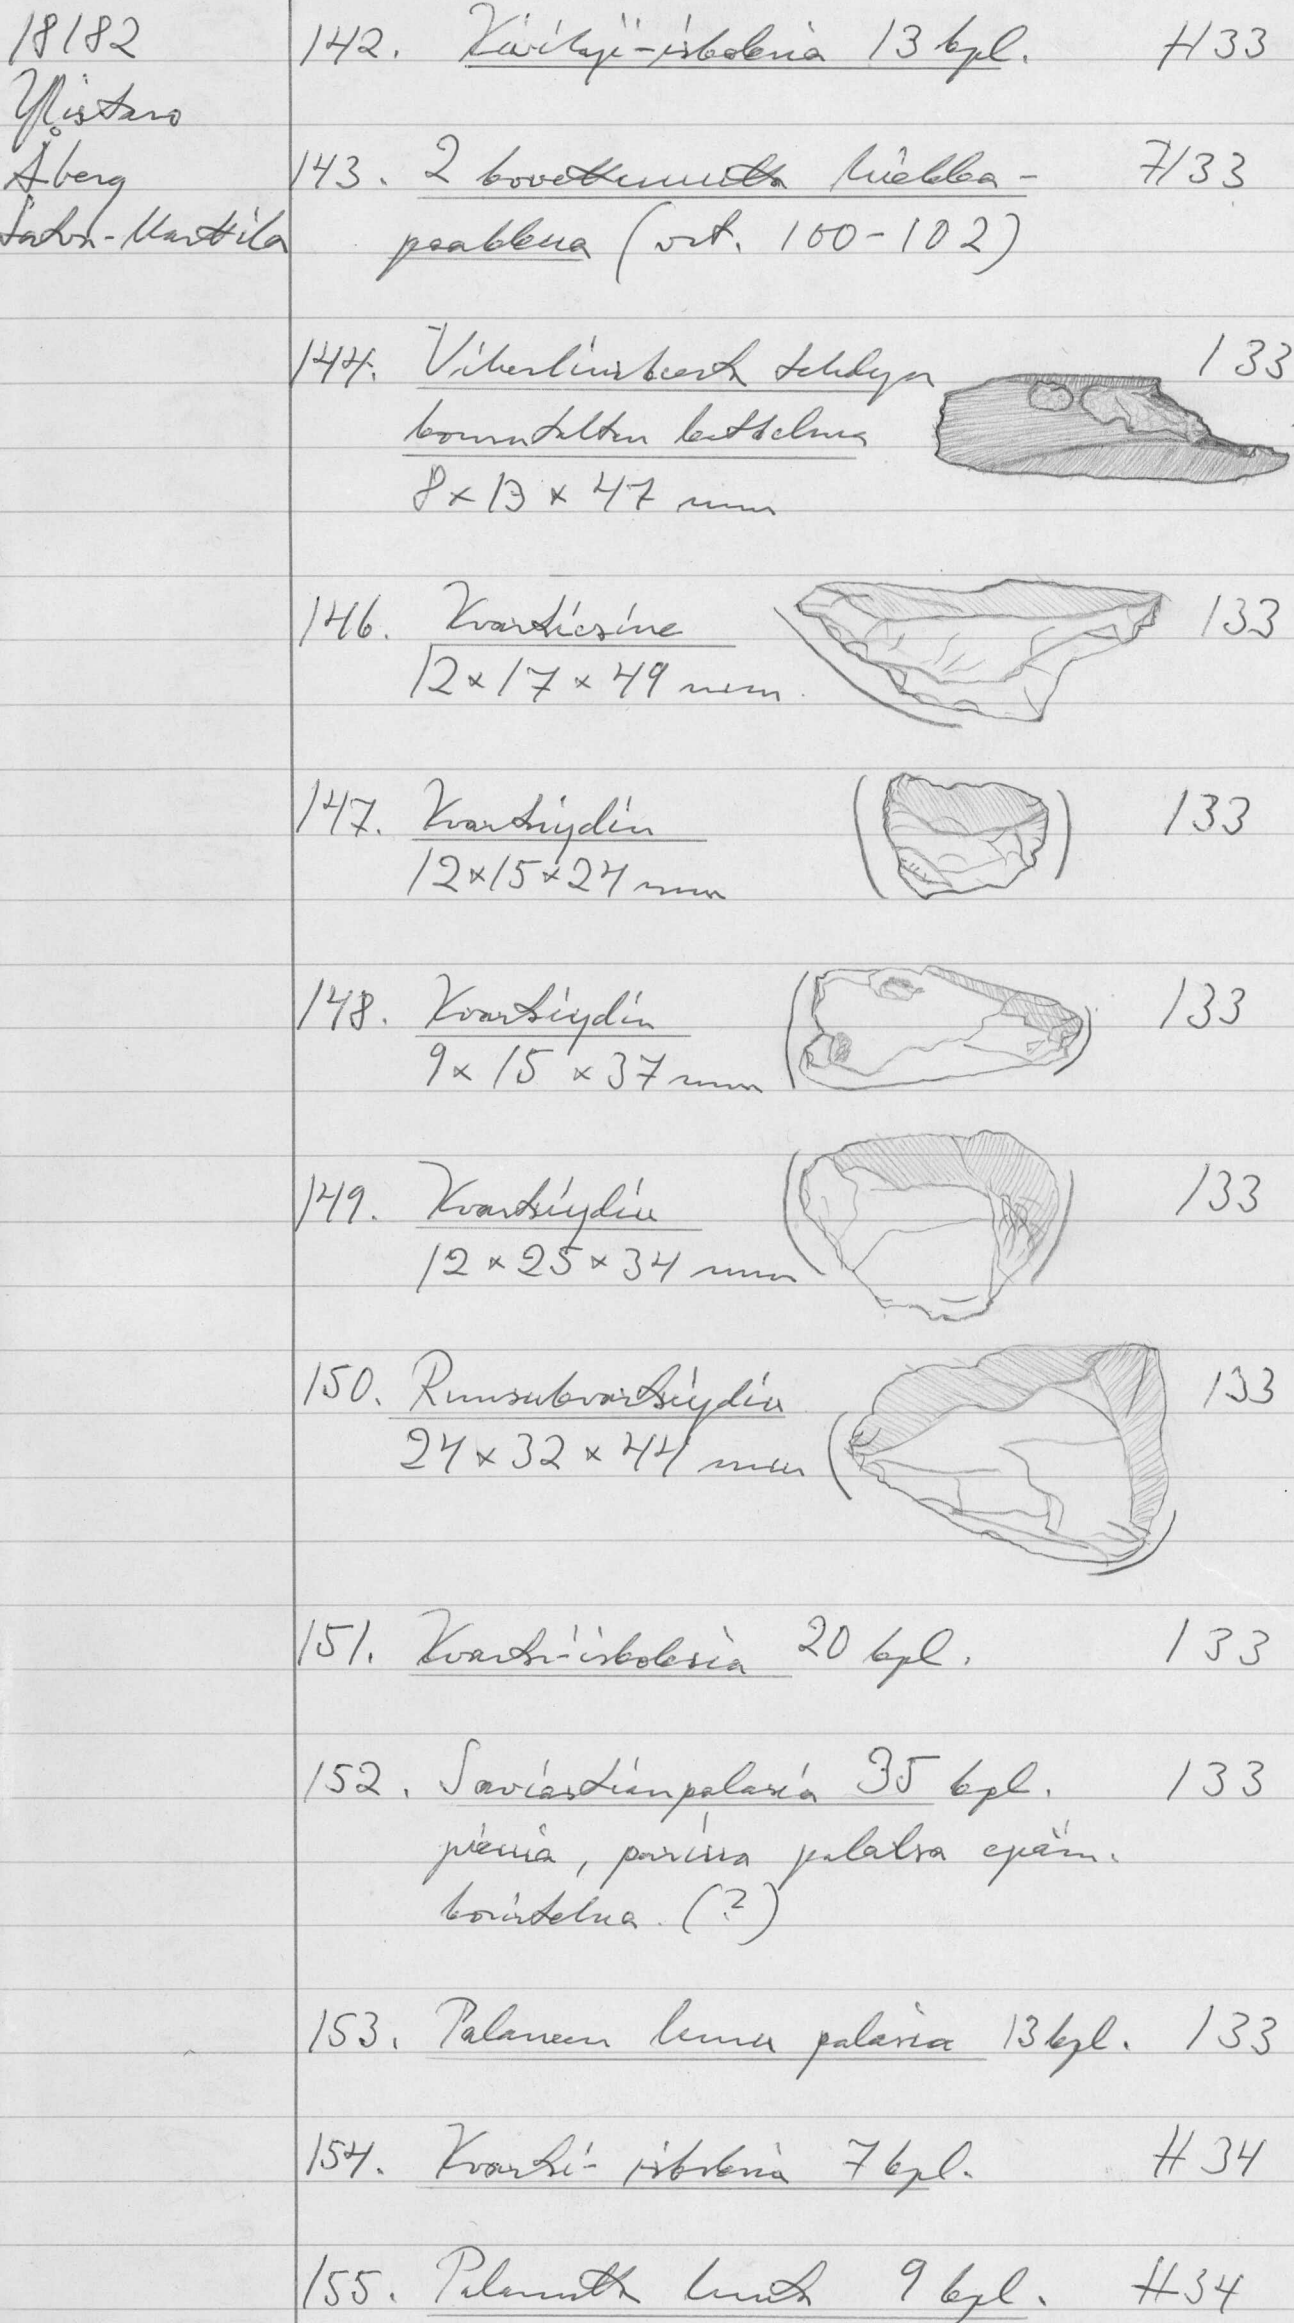 18182
Ylistaro
Åberg
Lator-Marttila
142. Kivilaji-iskoksia 13 kpl. H33
143. 2 kovettunutta hiekka-
paakkua (vrt. 100-102) H33
144. Viherliuskeesta tehdyn
kourutaltan katkelma
8 x 13 x 47 mm I33
146. Kvartsiesine
12 x 17 x 49 mm I33
147. Kvartsiydin
12 x 15 x 24 mm I33
148. Kvartsiydin
9 x 15 x 37 mm I33
149. Kvartsiydin
12 x 25 x 34 mm I33
150. Ruusukvartsiydin
24 x 32 x 44 mm I33
151. Kvartsi-iskoksia 20 kpl. I33
152. Saviastianpalasia 35 kpl. I33
pieniä, parissa palalsa epäm.
koristelua. (?)
153. Palaneen luun palasia 13 kpl. I33
154. Kvartsi-iskoksia 7 kpl. H34
155. Palanutta luuta 9 kpl. H34